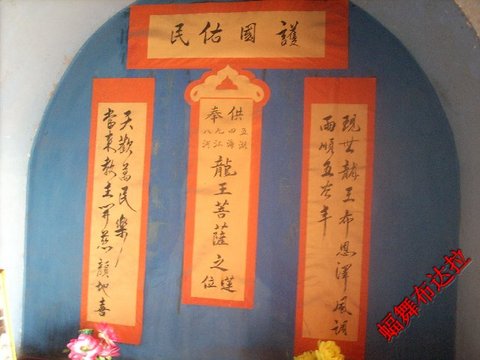 護國佑民
現世龍王布恩澤風調
雨順五谷丰
供奉
五湖
四海
九江
八河
龍王菩薩之蓮位
天歡萬民樂
當來教主開慈顔地喜
蝠舞布达拉